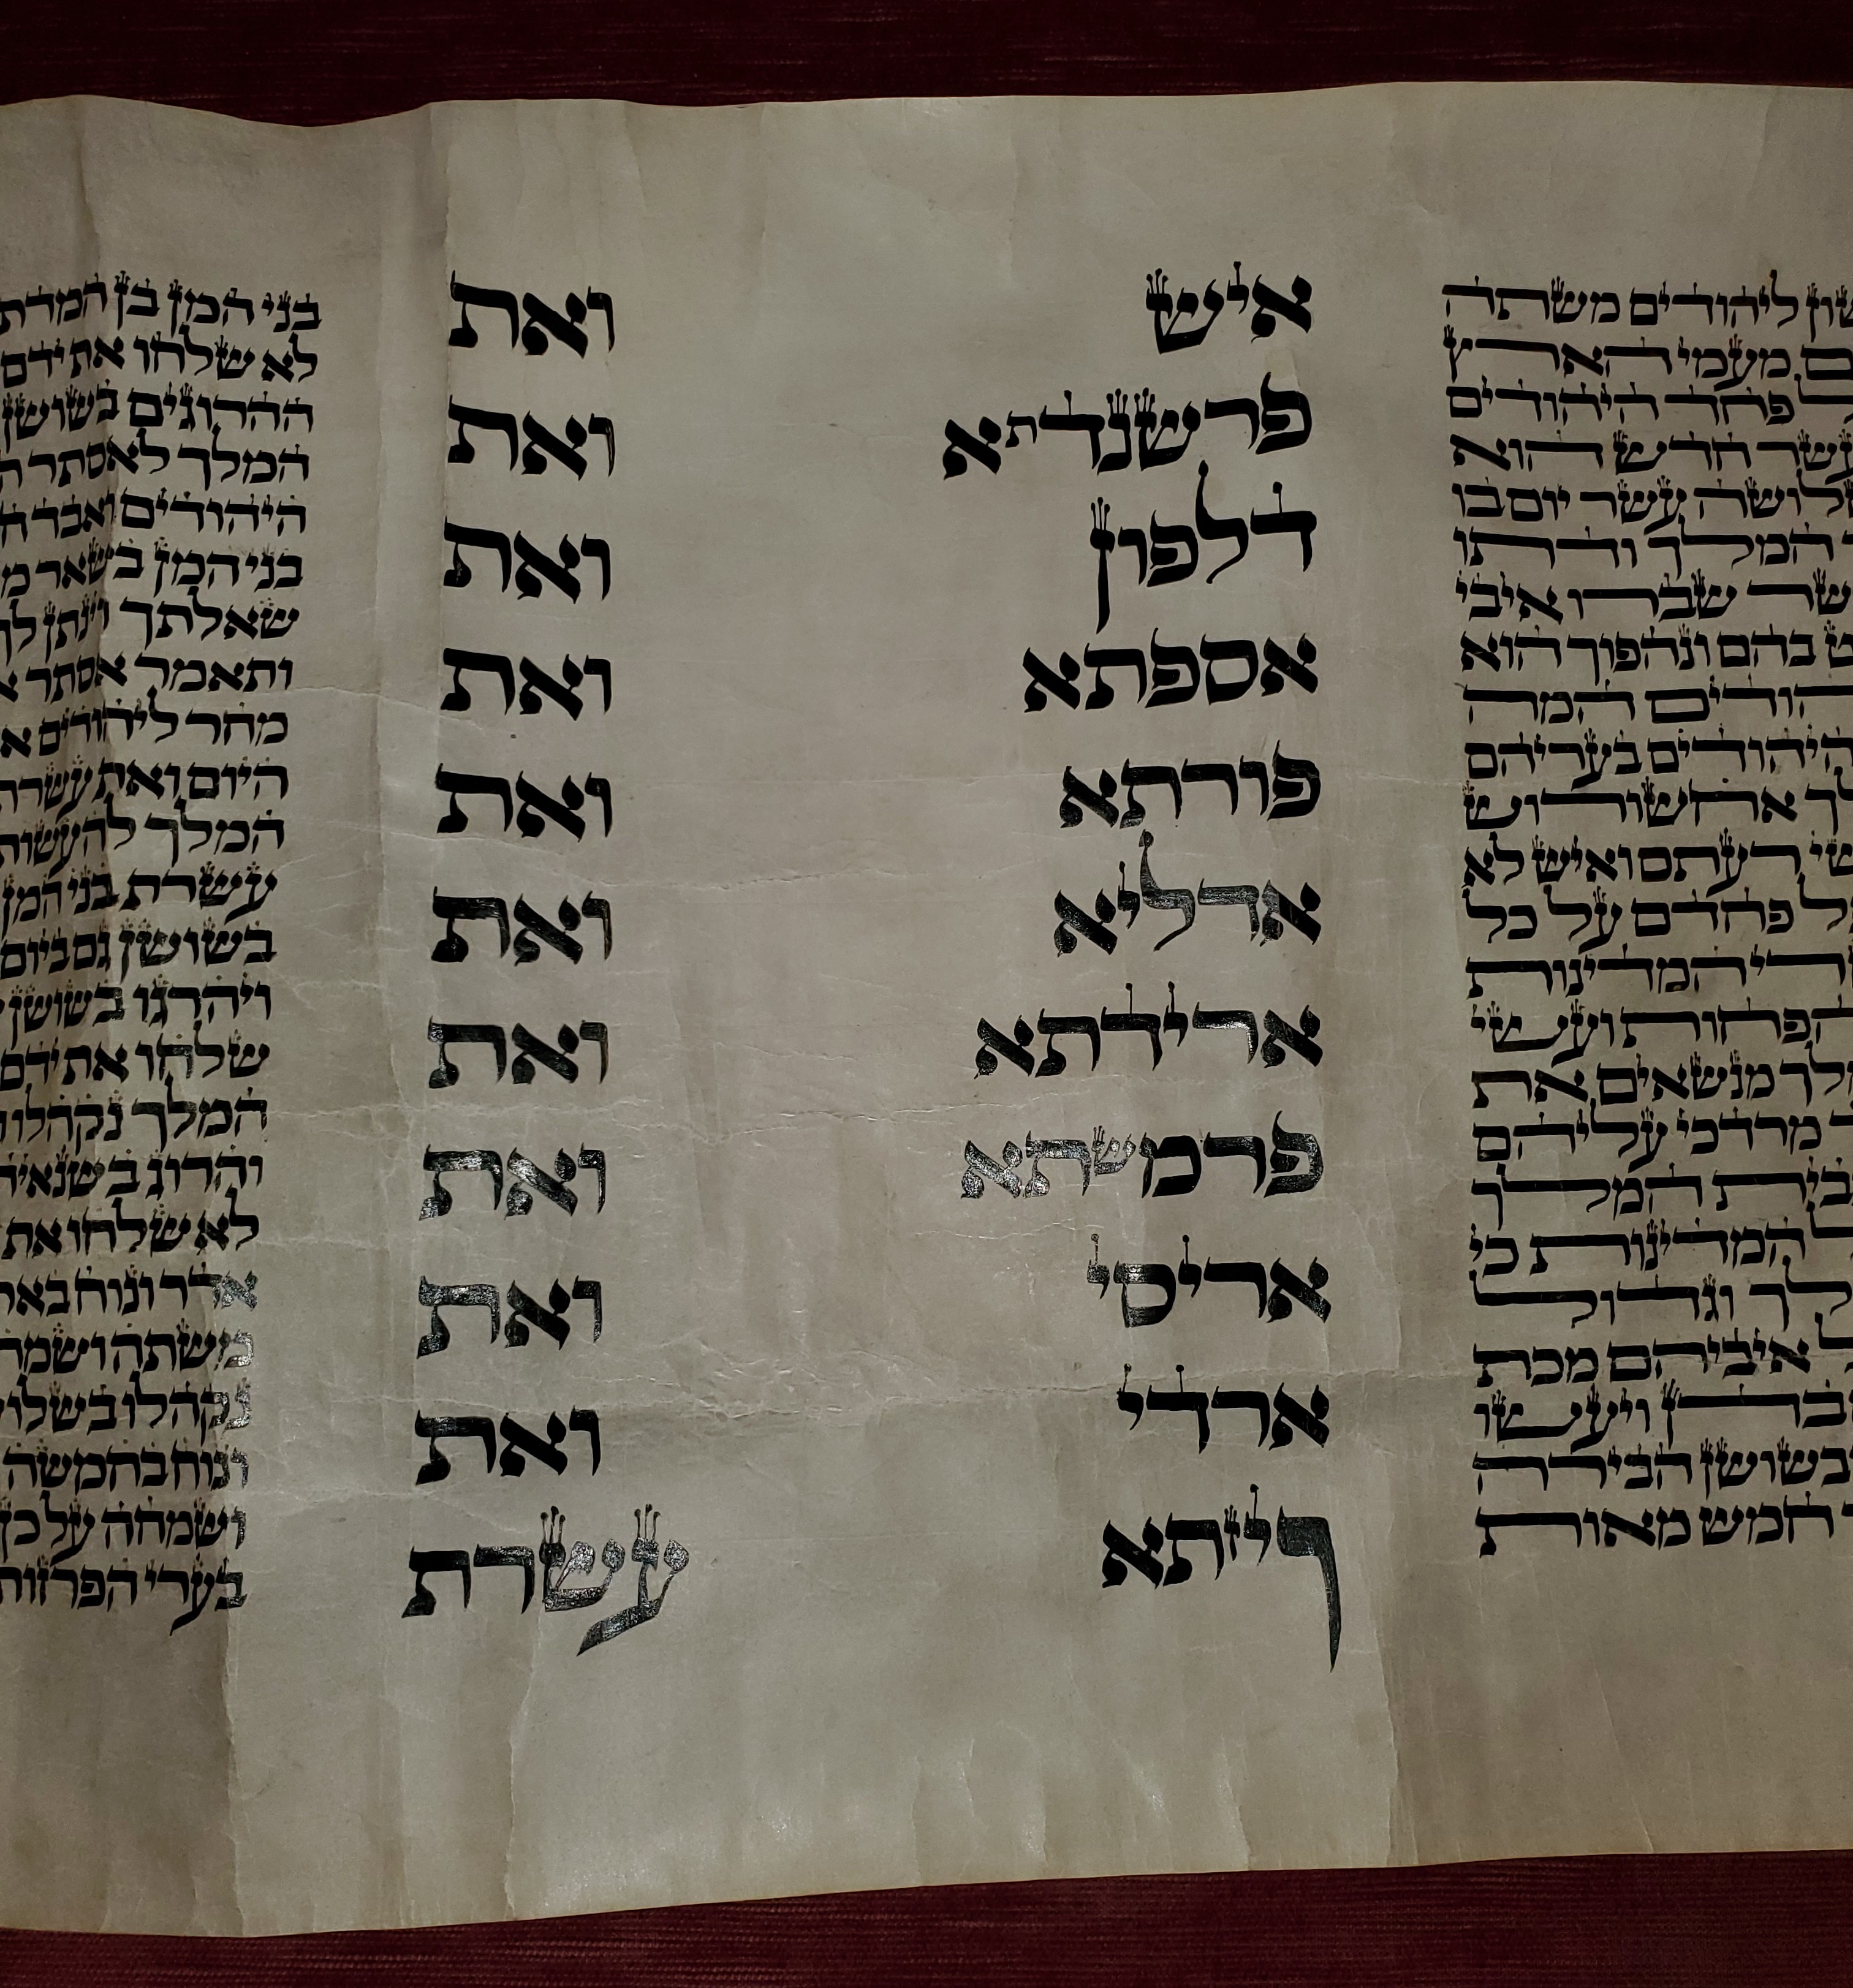 שון ליהודים משתה
ם מעמי הארץ
ל פחד היהודים
עשר חדש הוא
לושה עשר יום בו
המלך ודתו
שר שברו איבי
ט בהם ונהפוך הוא
הודים המה
היהודים בעריהם
לך אחשורוש
שי רעתם ואיש לא
ל פחדם על כל
רי המדינות
הפחות ועשי
לך מנשאים את
ד מרדכי עליהם
בית המלך
ל המדינות כי
לך וגדול
ל איביהם מכת
בדן ויעשו
בשושן הבירה
ד חמש מאות
איש ואת
פרשנדתא ואת
דלפון ואת
אספתא ואת
פורתא ואת
אדליא ואת
ארידתא ואת
פרמשתא ואת
אריסי ואת
ארדי ואת
ויזתא עשרת
בני המן בן המדת
לא שלחו את ידם
ההרוגים בשושן
המלך לאסתר ה
היהודים ואבד ח
בני המן בשאר מ
שאלתך וינתן לך
ותאמר אסתר א
מחר ליהודים א
היום ואת עשרת
המלך להעשות
עשרת בני המן
בשושן גם ביום
ויהרגו בשושן
שלחו את ידם
המלך נקהלו
והרוג בשנאיה
לא שלחו את
אדר ונוח באר
משתה ושמח
נקהלו בשלו
ונוח בחמשה
ושמחה על כן
בערי הפרזות